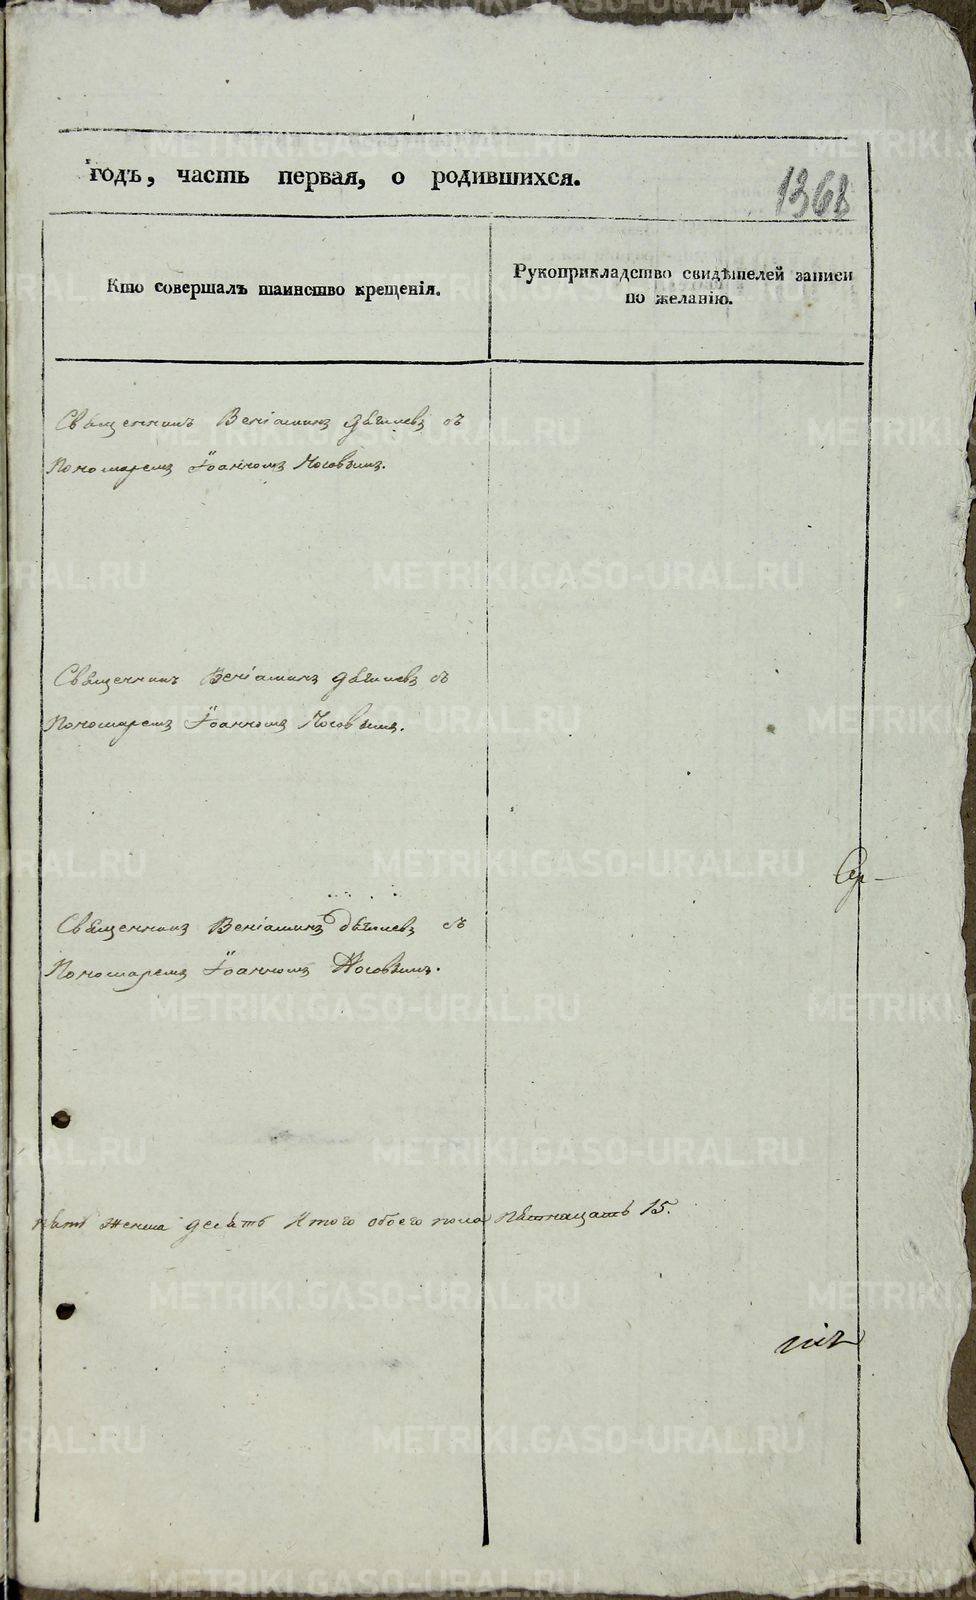 годъ, часть первая, о родившихся.
1368
Кто совершалъ таинство крещенія.
Рукоприкладство свидѣтелей записи
по желанію.
Священникъ Веніаминъ Дягилевъ съ
Пономаремъ Іоанномъ Носовымъ.
Священникъ Веніаминъ Дягилевъ съ
Пономаремъ Іоанномъ Носовымъ.
Священникъ Веніаминъ Дягилевъ съ
Пономаремъ Іоанномъ Носовымъ.
пять женска десять Итого обоего пола пятнадцать 15.
METRIKI.GASO-URAL.RU